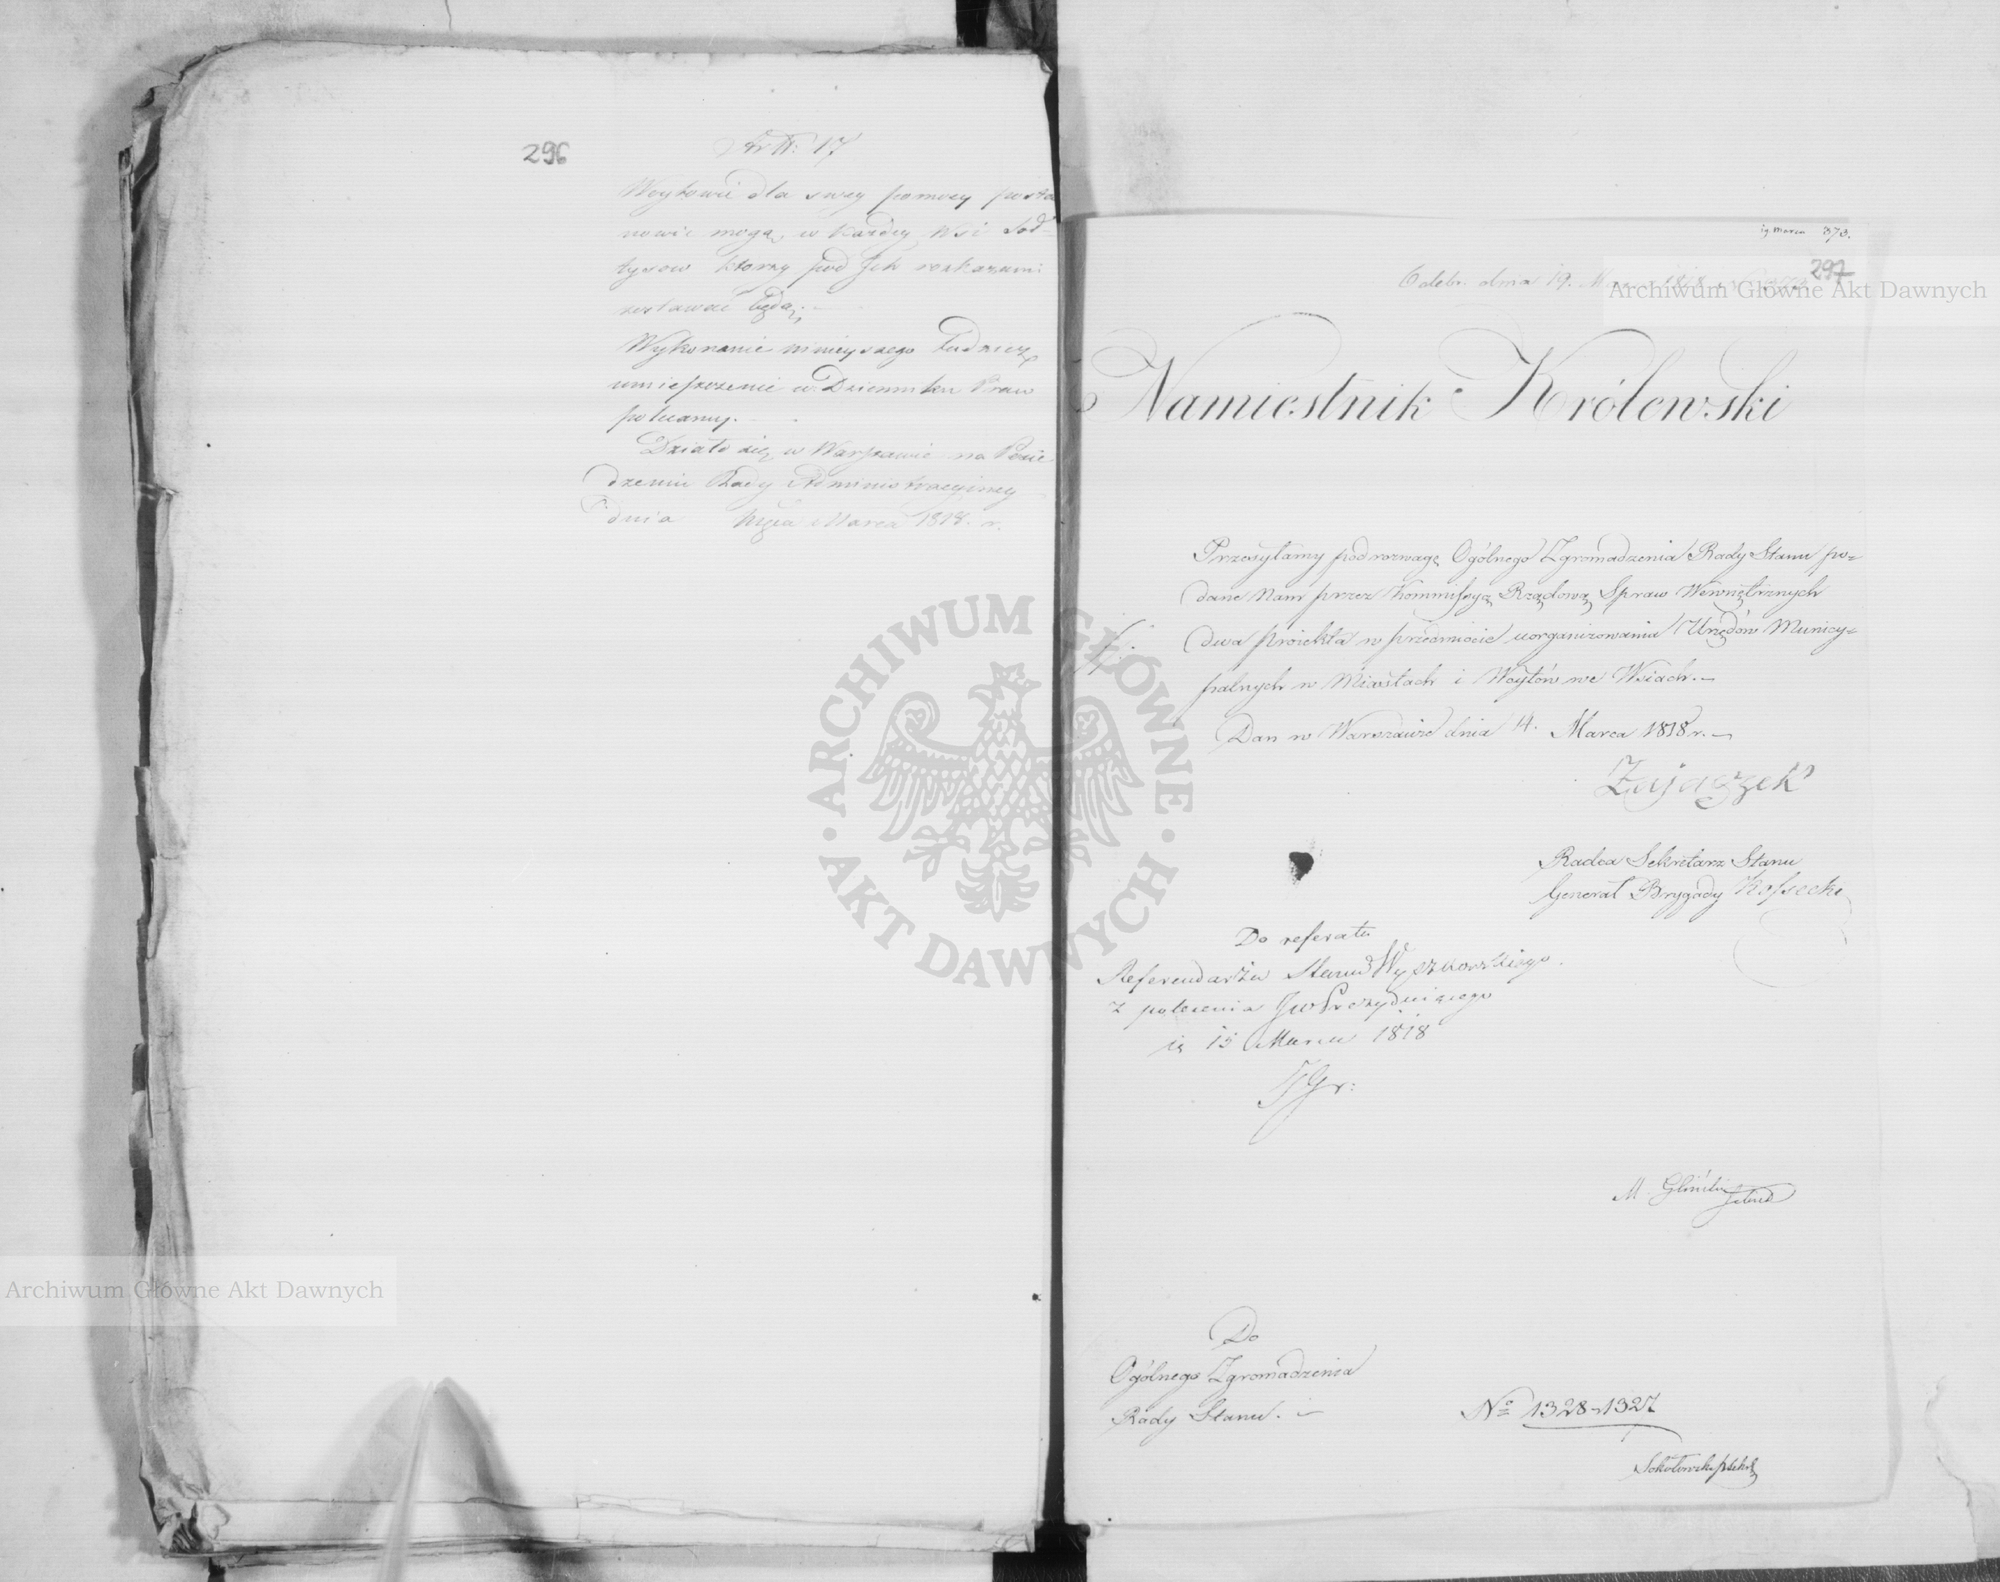 296
Artt: 17
Woytowie dla swey pomocy posta
nowić mogą w każdey Wsi Soł-
tysow ktorzy pod Jch rozkazami
zostawać będą.
Wykonanie ninieyszego tudzież
umieszczenie w Dzienniku Praw
polecamy.
Działo się w Warszawie na Posie
dzeniu Rady Administracyiney
dnia Mca Marca 1818. r.
19 Marca 373.
297
Odebr. dnia 19. Mar. 1818
Namiestnik Królewski
Przesyłamy pod rozwagę Ogólnego Zgromadzenia Rady Stanu po-
dane Nam przez Kommissyą Rządową Spraw Wewnętrznych
dwa proiekta w przedmiocie uorganizowania Urzędów Municy-
palnych w Miastach i Woytów we Wsiach.—
Dan w Warszawie dnia 14. Marca 1818 r.—
Zajączek
Radca Sekretarz Stanu
Generał Brygady Kossecki
Do referatu
Referendarza Stanu Wyszkowskiego.
z polecenia JW Prezyduiącego
15 Marca 1818
Do
Ogólnego Zgromadzenia
Rady Stanu.
No 1328-1327
Archiwum Główne Akt Dawnych
Archiwum Główne Akt Dawnych
ARCHIWUM GŁÓWNE · AKT DAWNYCH ·